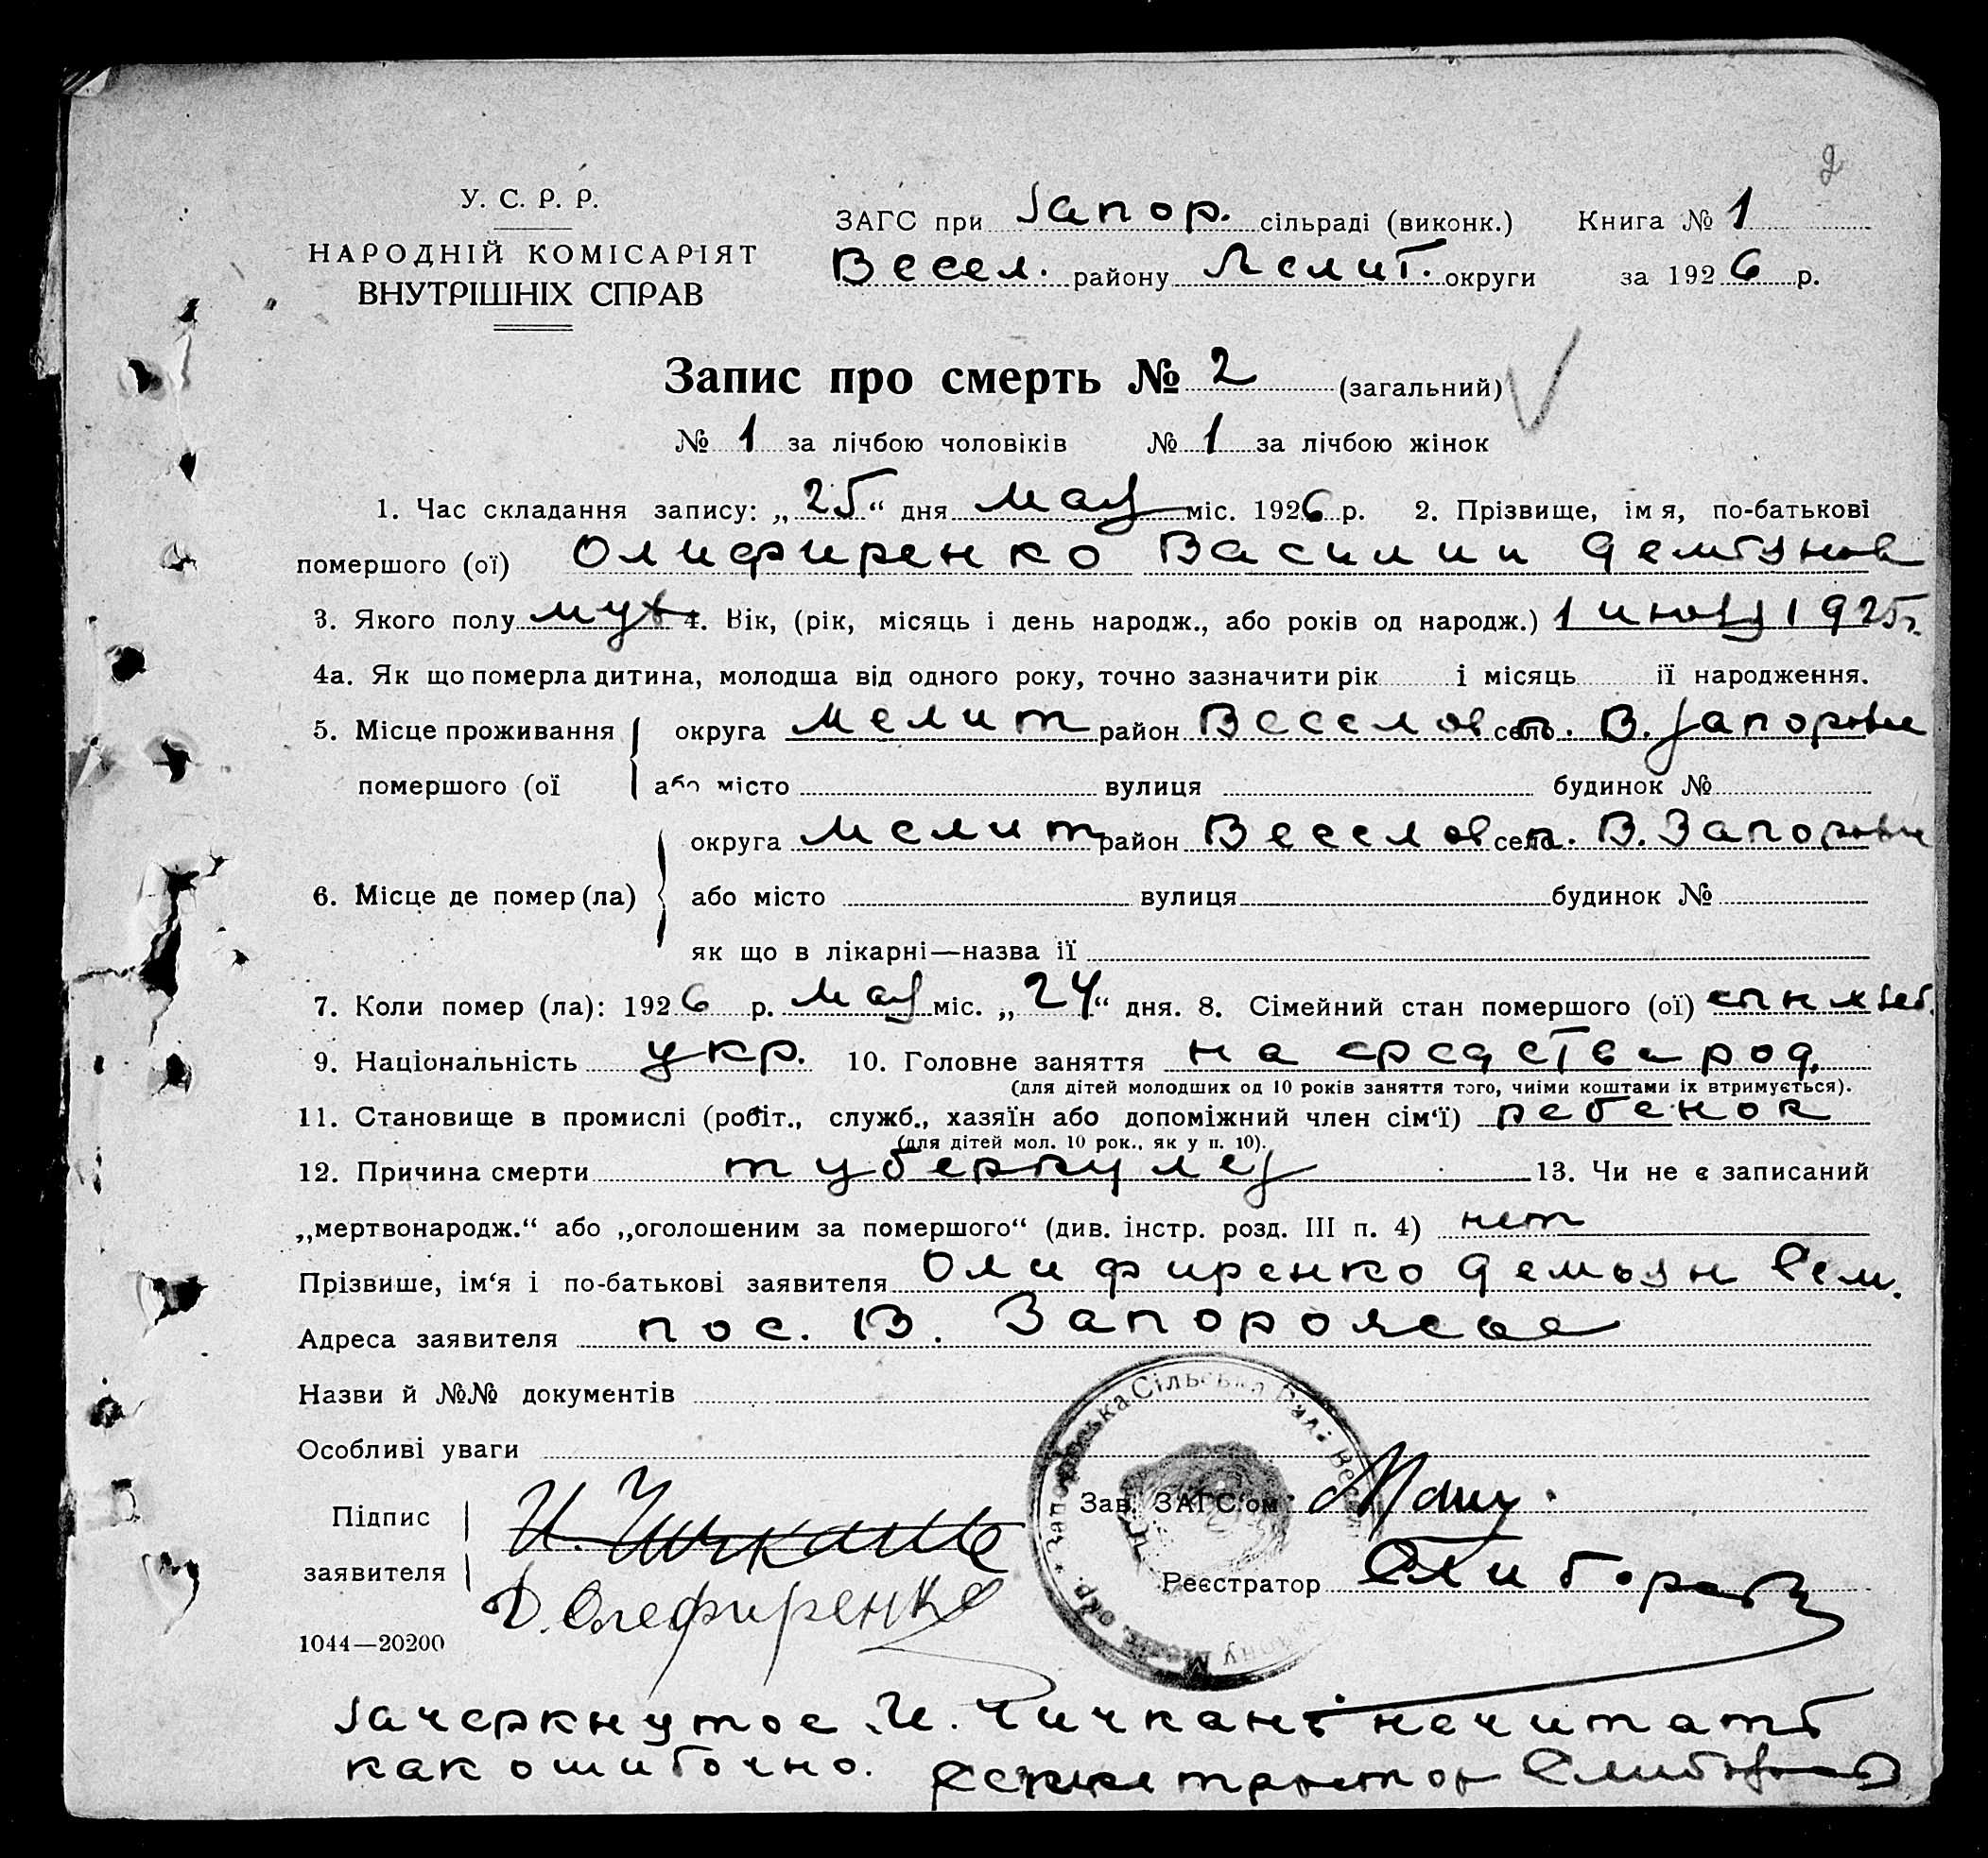 2
У. С. Р. Р.
НАРОДНІЙ КОМІСАРІЯТ
ВНУТРІШНІХ СПРАВ
ЗАГС при Запор. сільраді (виконк.) Книга № 1
Весел. району Мелит. округи за 1926 р.
Запис про смерть № 2 (загальний)
№ 1 за лічбою чоловіків № 1 за лічбою жінок
1. Час складання запису: „25“ дня мая міс. 1926 р. 2. Прізвище, імя, по-батькові
помершого (ої) Олифиренко Василий Демьянов
3. Якого полу муж 4. Вік, (рік, місяць і день народж., або років од народж.) 1 июля 1925 г.
4а. Як що померла дитина, молодша від одного року, точно зазначити рік і місяць її народження.
5. Місце проживання округа Мелит район Веселов село п. В. Запорожье
помершого (ої або місто вулиця будинок №
округа Мелит район Веселов село п. В. Запорожье
6. Місце де помер (ла) або місто вулиця будинок №
як що в лікарні—назва ії
7. Коли помер (ла): 1926 р. мая міс. „24“ дня. 8. Сімейний стан помершого (ої)
9. Національність укр. 10. Головне заняття на средства род.
(для дітей молодших од 10 років заняття того, чиїми коштами їх втримується).
11. Становище в промислі (робіт., служб., хазяїн або допоміжний член сім‘ї) ребенок
(для дітей мол. 10 рок., як у п. 10).
12. Причина смерти туберкулез 13. Чи не є записаний
„мертвонародж.“ або „оголошеним за помершого“ (див. інстр. розд. III п. 4) нет
Прізвише, ім‘я і по-батькові заявителя Олифиренко Демьян Сем.
Адреса заявителя пос. В. Запорожье
Назви й №№ документів
Особливі уваги
Підпис И. Чичкань
заявителя Д. Олефиренко
Зав. ЗАГС‘ом
Реєстратор
1044—20200
Зачеркнутое И. Чичкань не читать
как ошибочно.